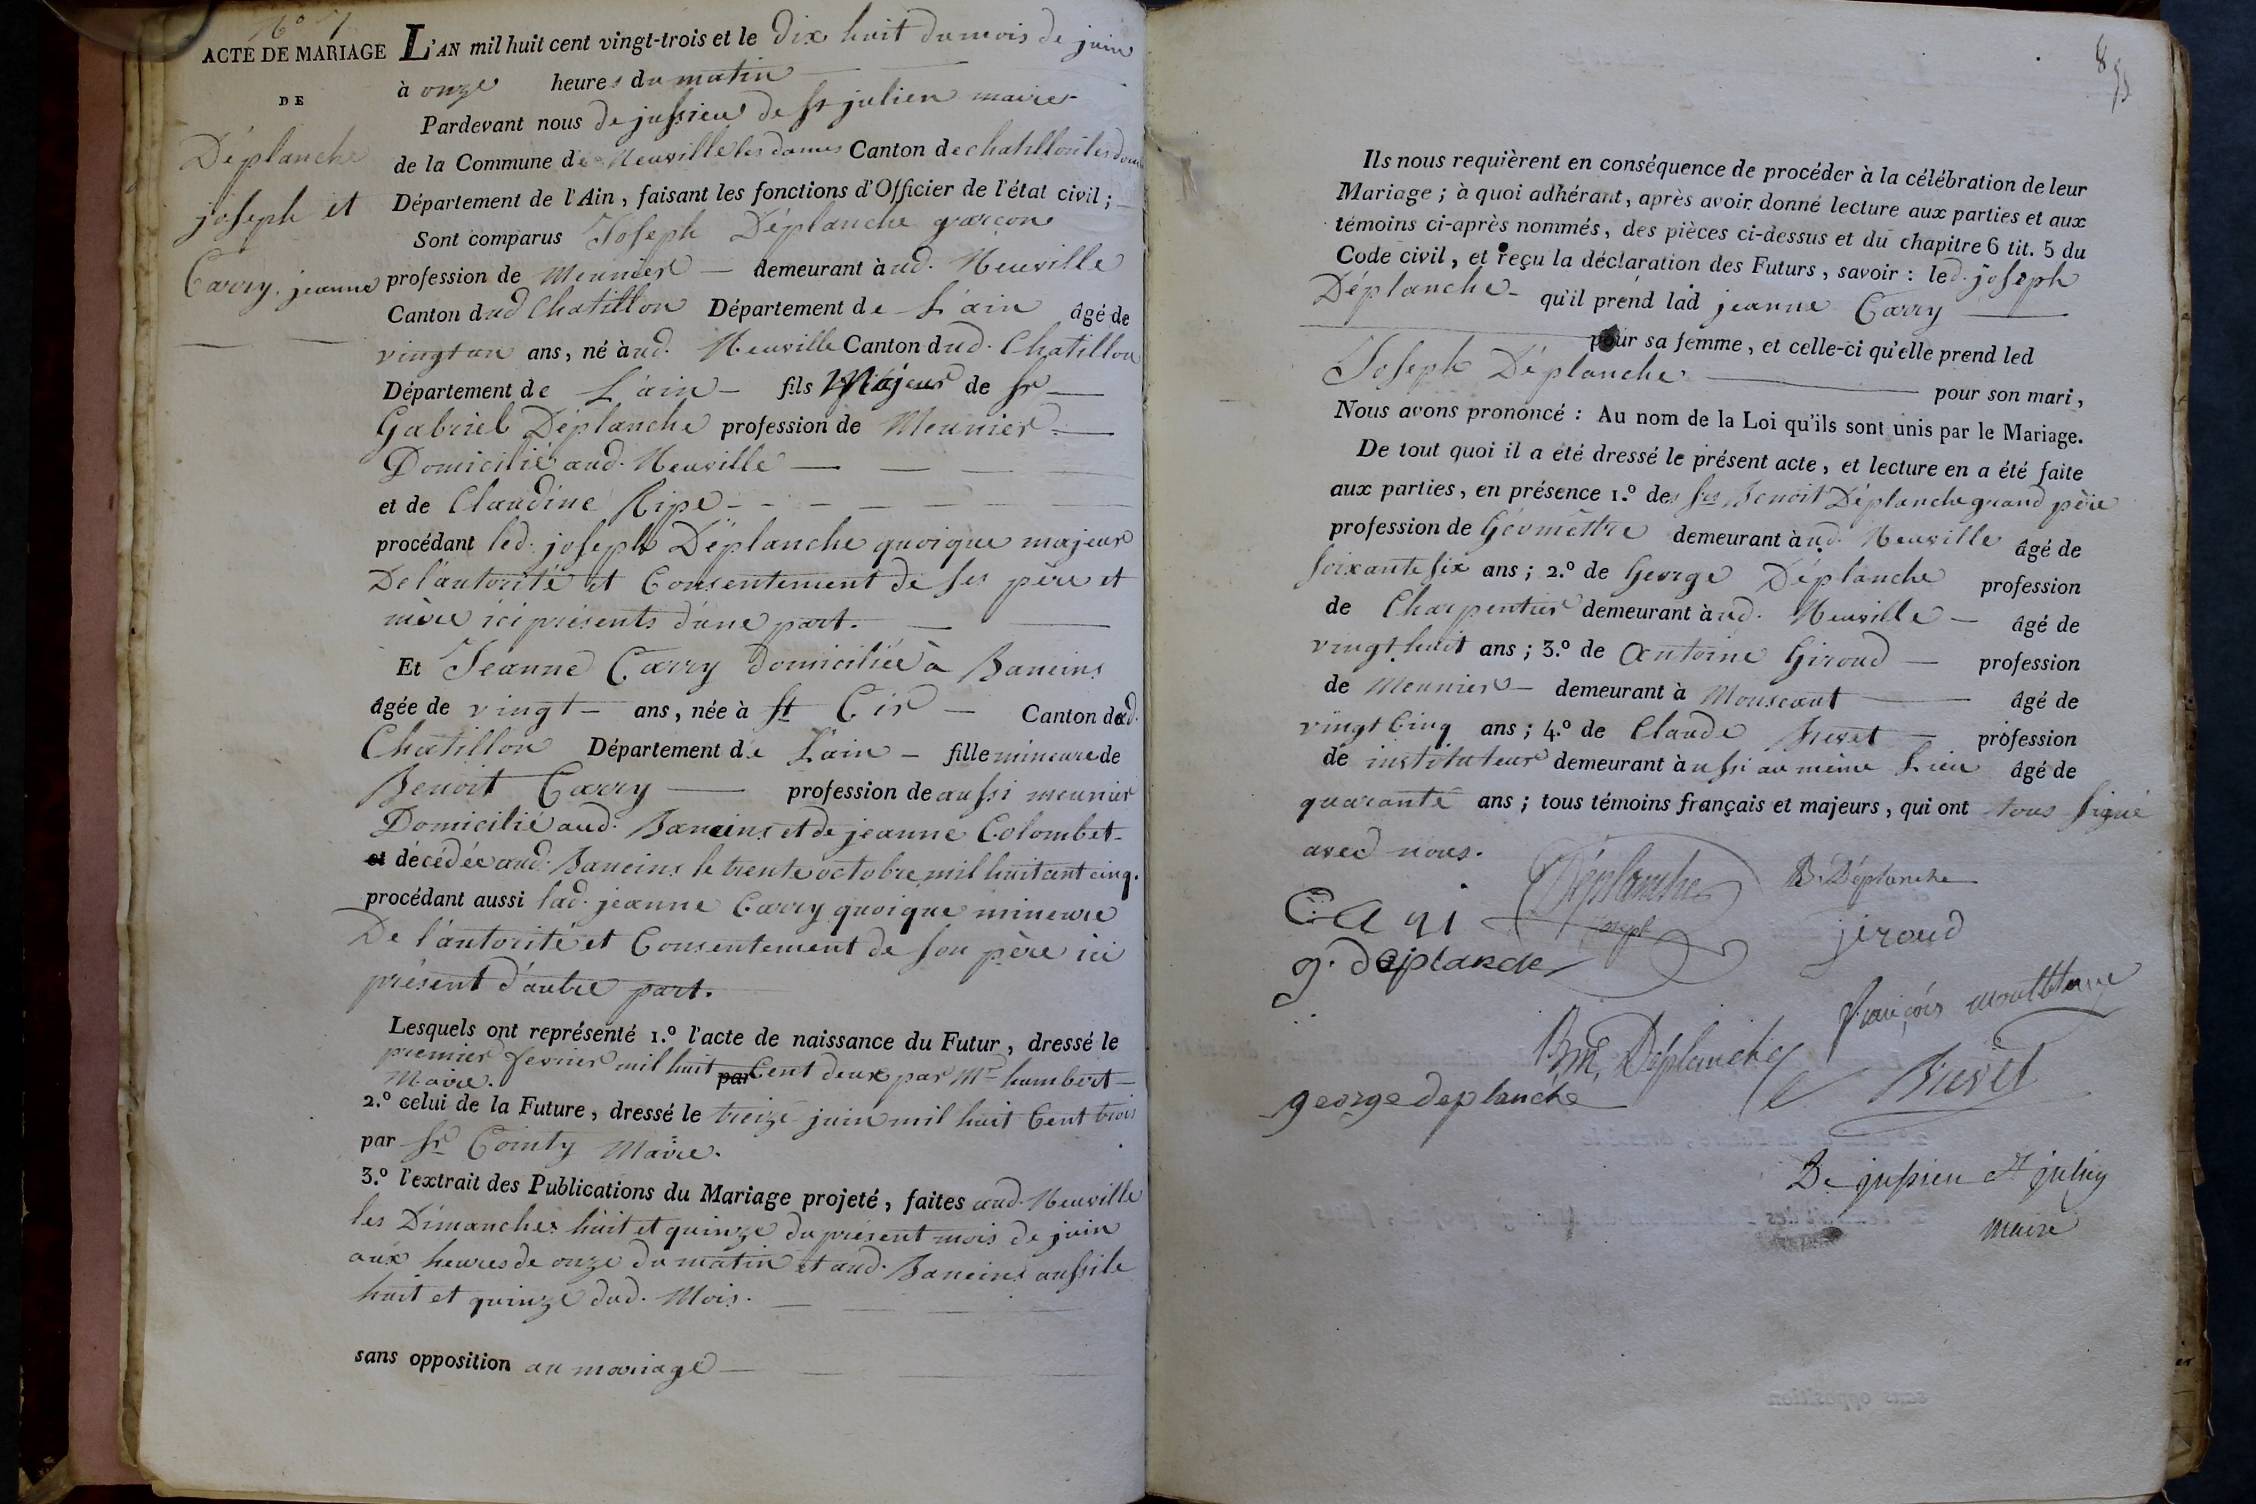 N° 7
ACTE DE MARIAGE
DE
Déplanche
joseph et
Carry. jeanne
L'AN mil huit cent vingt-trois et le dix huit du mois de juin
à onze heures du matin
Pardevant nous de jussieu de St julien maire
de la Commune de Neuville les dames Canton de chatillon les dom
Département de l'Ain, faisant les fonctions d'Officier de l'état civil;
Sont comparus Joseph Déplanche garçon
profession de Meunier demeurant à ud. Neuville
Canton dud Chatillon Département de L'ain âgé de
vingt un ans, né à ud. Neuville Canton dud. Chatillon
Département de L'ain fils Majeur de Sr
Gabriel Déplanche profession de Meunier
Domicilié aud. Neuville
et de Claudine Ripe
procédant led. joseph Déplanche quoique majeur
De l'autorité et Consentement de ses père et
mère ici présents d'une part.
Et Jeanne Carry domiciliée à Baneins
âgée de vingt ans, née à St Cir Canton dud.
Chatillon Département de L'ain fille mineure de
Benoit Carry profession de aussi meunier
Domicilié aud. Baneins et de jeanne Colombet
et décédée aud. Baneins le trente octobre mil huit cent cinq.
procédant aussi lad. jeanne Carry quoique mineure
De l'autorité et Consentement de son père ici
présent d'autre part.
Lesquels ont représenté 1.º l'acte de naissance du Futur, dressé le
premier fevrier mil huit par Cent deux par Mr humbert
Maire.
2.º celui de la Future, dressé le treize juin mil huit Cent trois
par Sr Cointy Maire.
3.º l'extrait des Publications du Mariage projeté, faites aud. Neuville
les Dimanches huit et quinze du présent mois de juin
aux heures de onze du matin et aud. Baneins aussi le
huit et quinze dud. Mois.
sans opposition au mariage
8
Ils nous requièrent en conséquence de procéder à la célébration de leur
Mariage; à quoi adhérant, après avoir donné lecture aux parties et aux
témoins ci-après nommés, des pièces ci-dessus et du chapitre 6 tit. 5 du
Code civil, et reçu la déclaration des Futurs, savoir: led. joseph
Déplanche qu'il prend lad jeanne Carry
pour sa femme, et celle-ci qu'elle prend led
Joseph Déplanche pour son mari,
Nous avons prononcé: Au nom de la Loi qu'ils sont unis par le Mariage.
De tout quoi il a été dressé le présent acte, et lecture en a été faite
aux parties, en présence 1.º des Srs Benoit Déplanche grand père
profession de Géomètre demeurant à ud. Neuville âgé de
soixante six ans; 2.º de George Déplanche profession
de Charpentier demeurant à ud. Neuville âgé de
vingt huit ans; 3.º de Antoine Giroud profession
de Meunier demeurant à Monseaut âgé de
vingt Cinq ans; 4.º de Claude Brevet profession
de instituteur demeurant à ussi au même Lieu âgé de
quarante ans; tous témoins français et majeurs, qui ont tous signé
avec nous.
Déplanche
joseph
B. Déplanche
Cari
jeroud
g. deplande
françois
Déplanche
Brevet
george deplanche
De jussieu St julien
maire